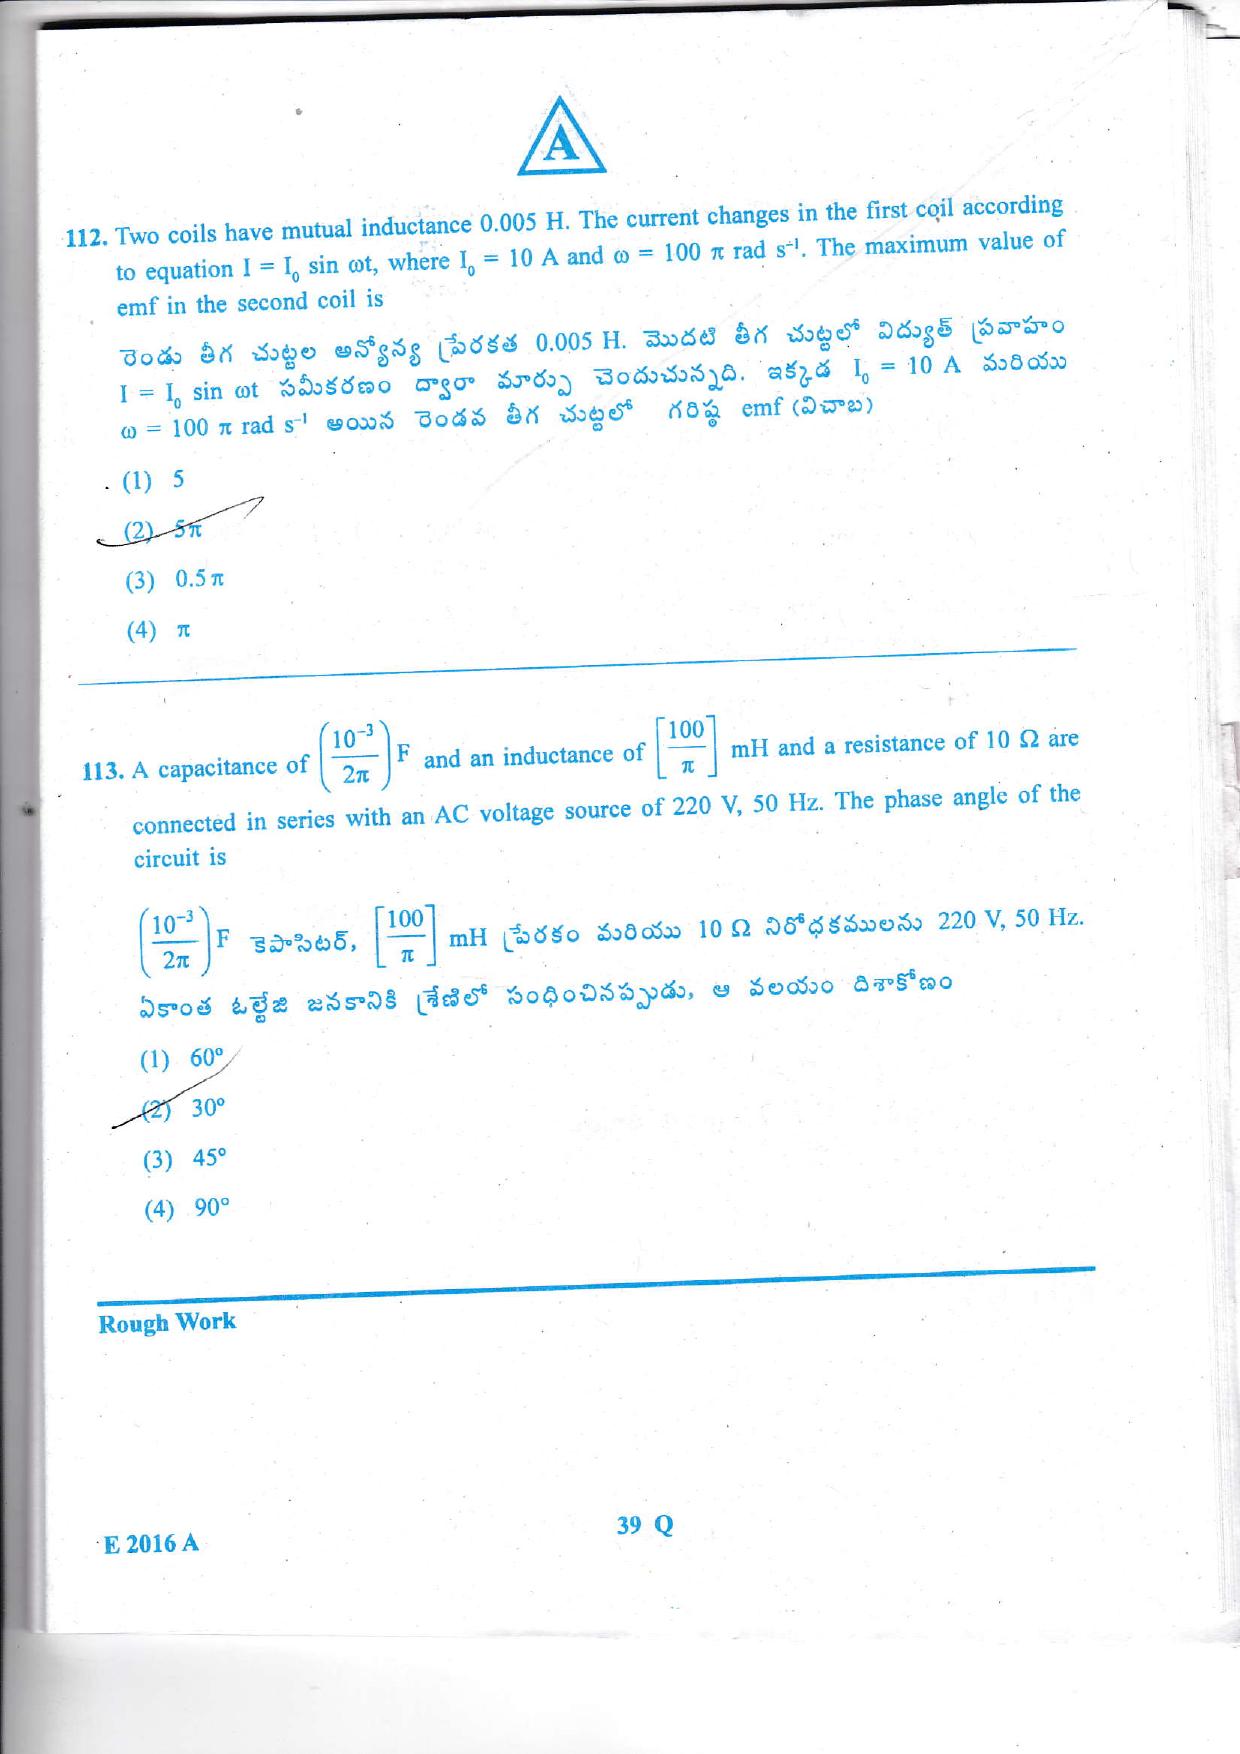 A
112. Two coils have mutual inductance 0.005 H. The current changes in the first coil according
to equation I = I₀ sin ωt, where I₀ = 10 A and ω = 100 π rad s⁻¹. The maximum value of
emf in the second coil is
రెండు తీగ చుట్టల అన్యోన్య ప్రేరకత 0.005 H. మొదటి తీగ చుట్టలో విద్యుత్ ప్రవాహం
I = I₀ sin ωt సమీకరణం ద్వారా మార్పు చెందుచున్నది. ఇక్కడ I₀ = 10 A మరియు
ω = 100 π rad s⁻¹ అయిన రెండవ తీగ చుట్టలో గరిష్ఠ emf (విచాబ)
(1) 5
(2) 5π
(3) 0.5 π
(4) π
113. A capacitance of (10⁻³/2π) F and an inductance of [100/π] mH and a resistance of 10 Ω are
connected in series with an AC voltage source of 220 V, 50 Hz. The phase angle of the
circuit is
(10⁻³/2π) F కెపాసిటర్, [100/π] mH ప్రేరకం మరియు 10 Ω నిరోధకములను 220 V, 50 Hz.
ఏకాంత ఓల్టేజి జనకానికి శ్రేణిలో సంధించినప్పుడు, ఆ వలయం దిశాకోణం
(1) 60°
(2) 30°
(3) 45°
(4) 90°
Rough Work
E 2016 A
39 Q